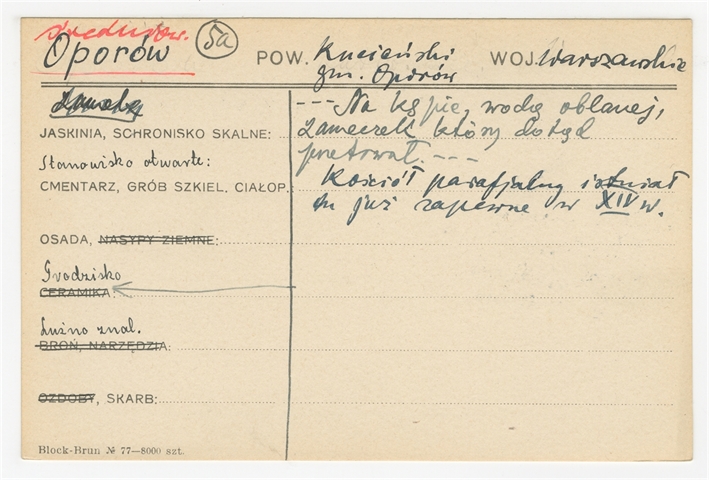 średniow.
Oporów 5a POW. Kucieński WOJ. Warszawskie
gm. Oporów
Zamek
--- Na kępie, wodą oblanej,
JASKINIA, SCHRONISKO SKALNE: zameczek który dotąd
Stanowisko otwarte: przetrwał. ---
CMENTARZ, GRÓB SZKIEL, CIAŁOP.: Kościół parafjalny istniał
tu już zapewne w XIV w.
OSADA, NASYPY ZIEMNE:
Grodzisko
CERAMIKA:
Luźno znal.
BROŃ, NARZĘDZIA:
OZDOBY, SKARB:
Block-Brun № 77—8000 szt.